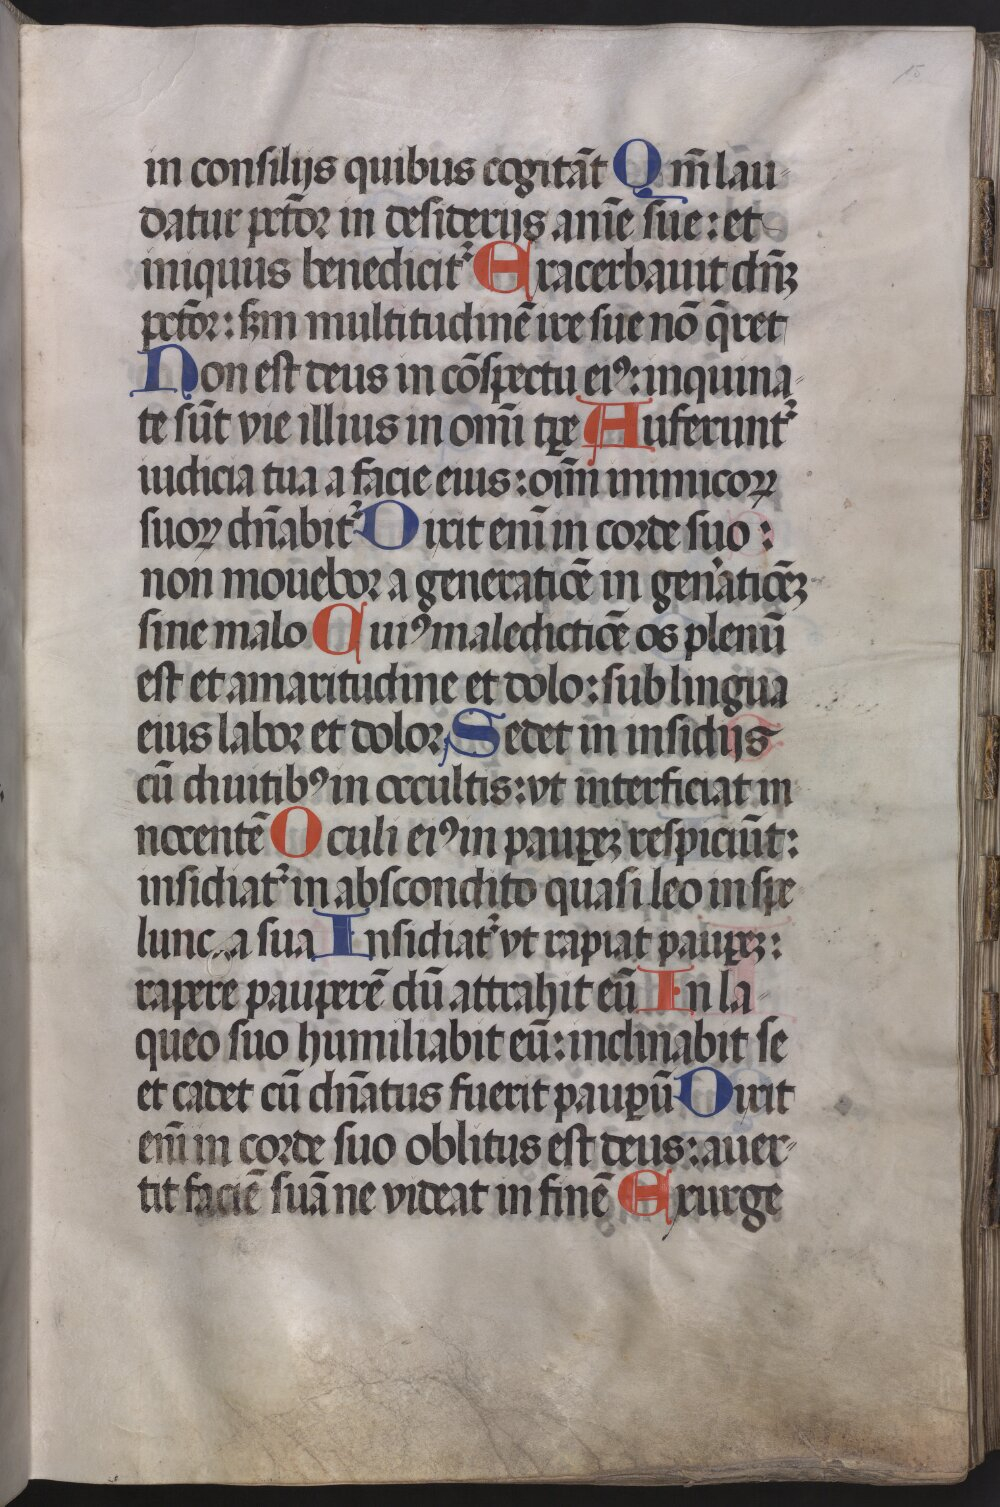 15
in consilijs quibus cogitāt Qm̄ lau
datur pctōr in desiderijs anīe sue : et
iniquus benedicit᷑ Exacerbauit dn̄ꝫ
pctōr : sꝫm multitudinē ire sue nō q̄ret
Non est deus in cōspectu eiꝰ : inquina
te sūt vie illius in omī tꝑe Auferunt᷑
iudicia tua a facie eius : oīm inimicoꝝ
suoꝝ dn̄abit᷑ Dixit enī in corde suo :
non mouebor a generatiōe in gen̄atiōeꝫ
sine malo Cuiꝰ maledictiōe os plenū
est et amaritudine et dolo : sub lingua
eius labor et dolor Sedet in insidijs
cū diuitibꝰ in occultis : vt interficiat in
nocentē Oculi eiꝰ in pauꝑeꝫ respiciūt :
insidiat᷑ in abscondito quasi leo in spe
lunc a sua Insidiat᷑ vt rapiat pauꝑeꝫ :
rapere pauperē dū attrahit eū In la
queo suo humiliabit eū : inclinabit se
et cadet cū dn̄atus fuerit pauꝑū Dixit
enī in corde suo oblitus est deus : auer
tit faciē suā ne videat in finē Exurge